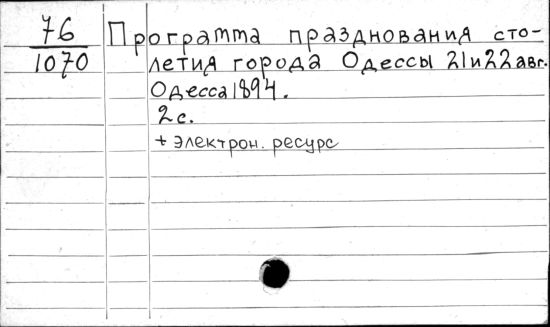 76 Программа празднования сто-
1070 летия города Одессы 21 и 22 авг.
Одесса 1894.
2 с.
+ электрон. ресурс